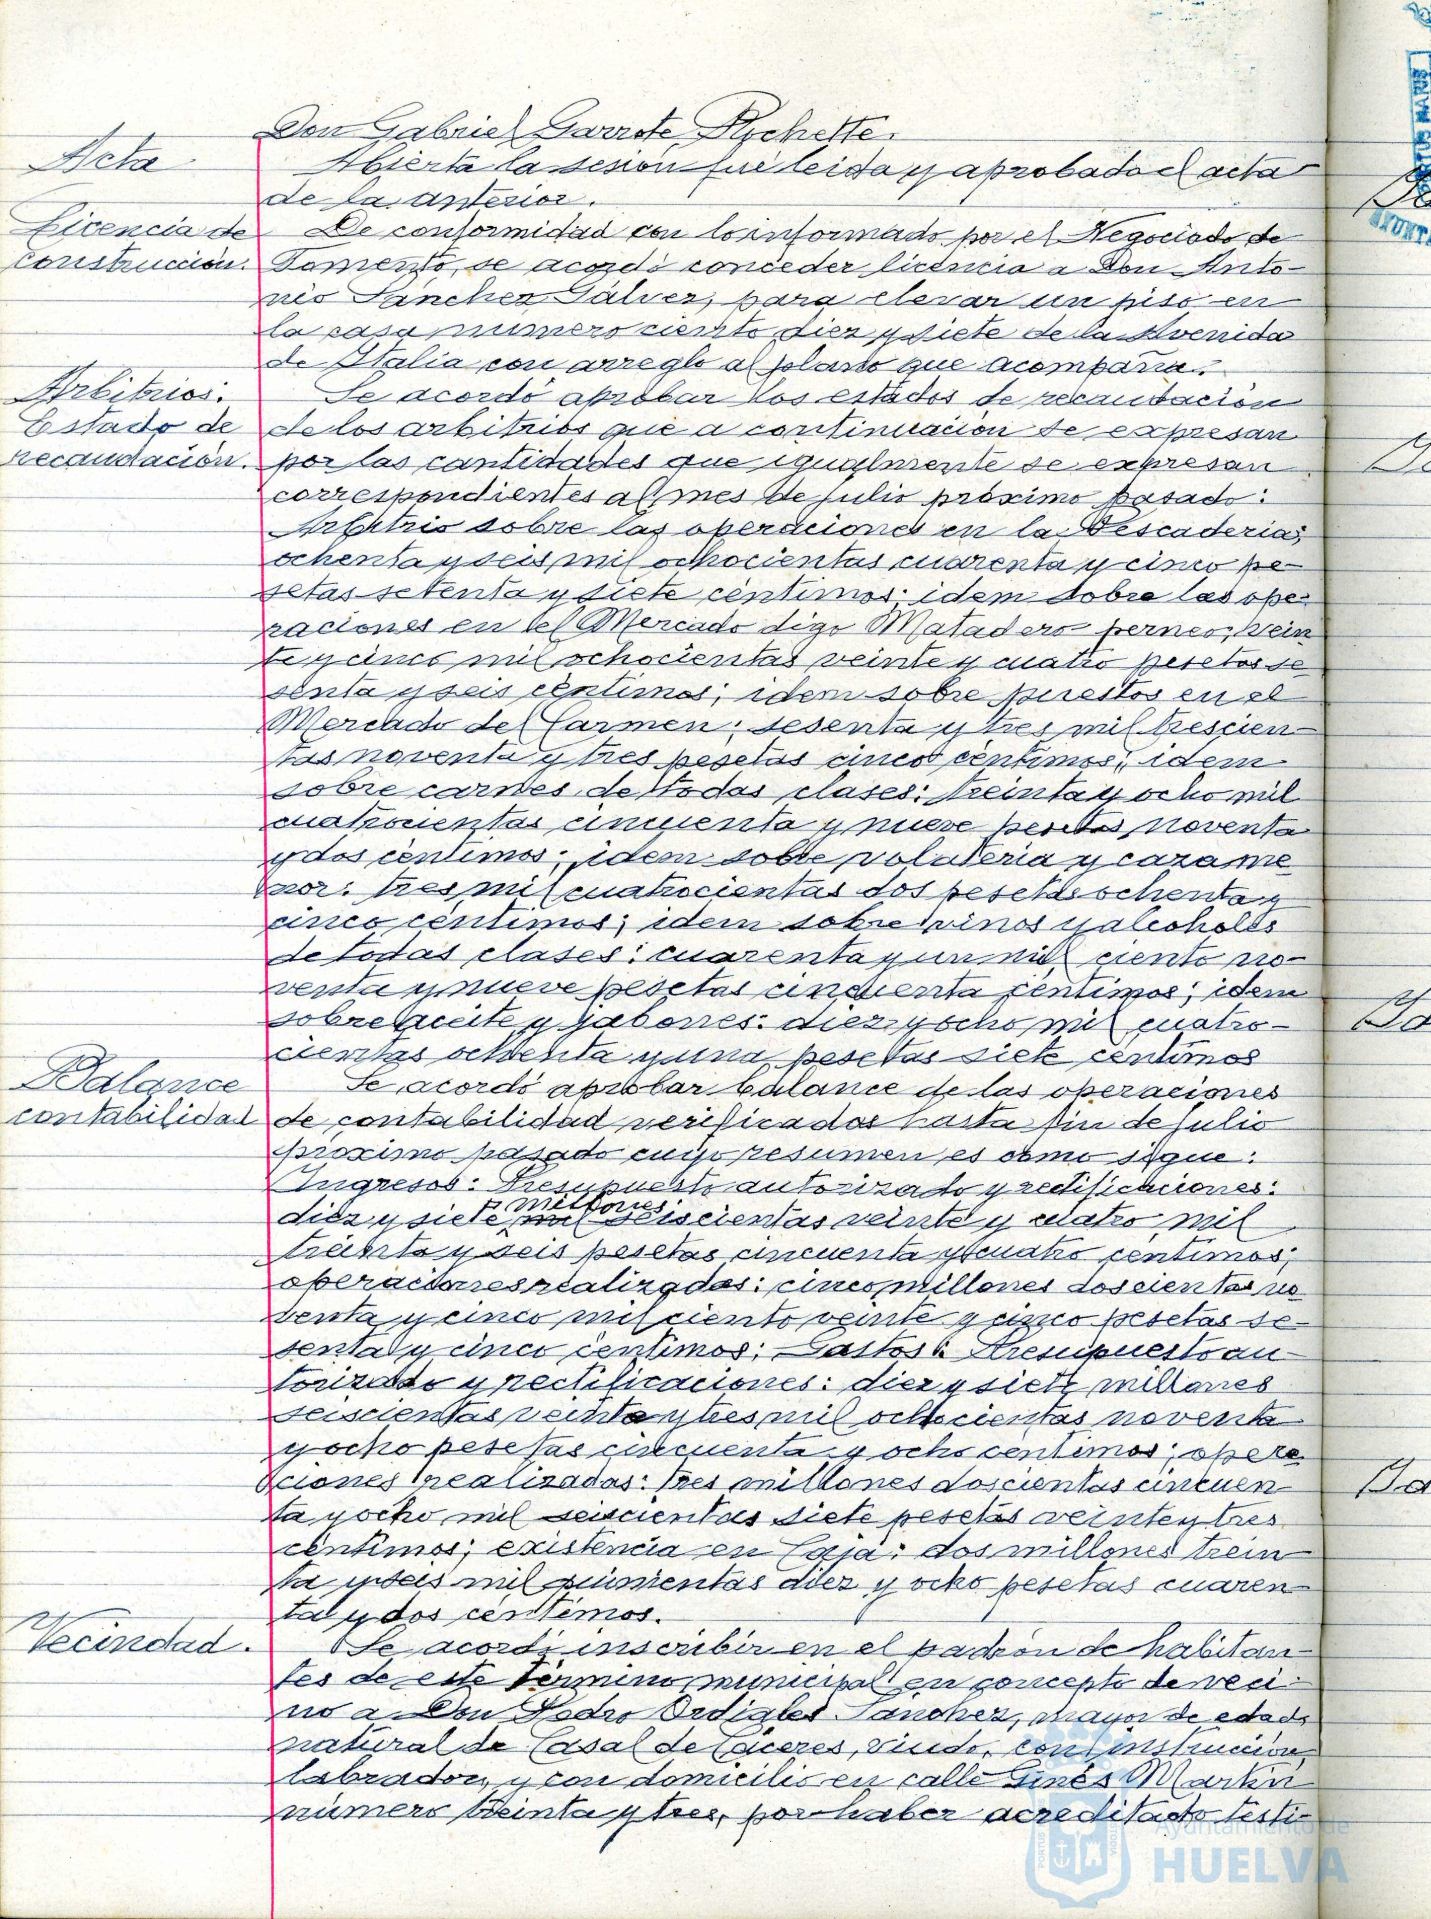 Don Gabriel Garrote Pychette.
Acta
Abierta la sesión fué leida y aprobado el acta
de la anterior.
Licencia de
construcción.
De conformidad con lo informado por el Negociado de
Fomento, se acordó conceder licencia a Don Anto-
nio Sánchez Gálvez, para elevar un piso en
la casa número ciento diez y siete de la Avenida
de Italia con arreglo al plano que acompaña.
Arbitrios:
Estado de
recaudación.
Se acordó aprobar los estados de recaudación
de los arbitrios que a continuación se expresan
por las cantidades que igualmente se expresan
correspondientes al mes de julio próximo pasado:
Arbitrio sobre las operaciones en la Pescaderia;
ochenta y seis mil ochocientas cuarenta y cinco pe-
setas setenta y siete céntimos; idem sobre las ope-
raciones en el Mercado digo Matadero perneo; vein
te y cinco mil ochocientas veinte y cuatro pesetas se
senta y seis céntimos; idem sobre puestos en el
Mercado del Carmen; sesenta y tres mil trescien-
tas noventa y tres pesetas cinco céntimos; idem
sobre carnes de todas clases: treinta y ocho mil
cuatrocientas cincuenta y nueve pesetas noventa
y dos céntimos; idem sobre volateria y caza me
nor: tres mil cuatrocientas dos pesetas ochenta y
cinco centimos; idem sobre vinos y alcoholes
de todas clases: cuarenta y un mil ciento no-
venta y nueve pesetas cincuenta céntimos; idem
sobre aceite y jabones: diez y ocho mil cuatro-
cientas ochenta y una pesetas siete centimos
Balance
contabilidad
Se acordó aprobar balance de las operaciones
de contabilidad verificadas hasta fin de julio
próximo pasado cuyo resumen es como sigue:
Ingresos: Presupuesto autorizado y rectificaciones:
diez y siete mil millones seiscientas veinte y cuatro mil
treinta y seis pesetas cincuenta y cuatro centimos;
operaciones realizadas: cinco millones doscientas no
venta y cinco mil ciento veinte y cinco pesetas se-
senta y cinco céntimos; Gastos: Presupuesto au-
torizado y rectificaciones: diez y siete millones
seiscientas veinte y tres mil ochocientas noventa
y ocho pesetas cincuenta y ocho centimos; opera
ciones realizadas: tres millones doscientas cincuen
ta y ocho mil seiscientas siete pesetas veinte y tres
céntimos; existencia en Caja: dos millones trein
ta y seis mil quinientas diez y ocho pesetas cuaren-
ta y dos céntimos.
Vecindad.
Se acordó inscribir en el padrón de habitan-
tes de este término municipal en concepto de veci-
no a Don Pedro Ordiales Sánchez, mayor de edad,
natural de Casal de Cáceres, viudo, con instrucción,
labrador, y con domicilio en calle Ginés Martín
número treinta y tres, por haber acreditado testi-
Ayuntamiento de
HUELVA